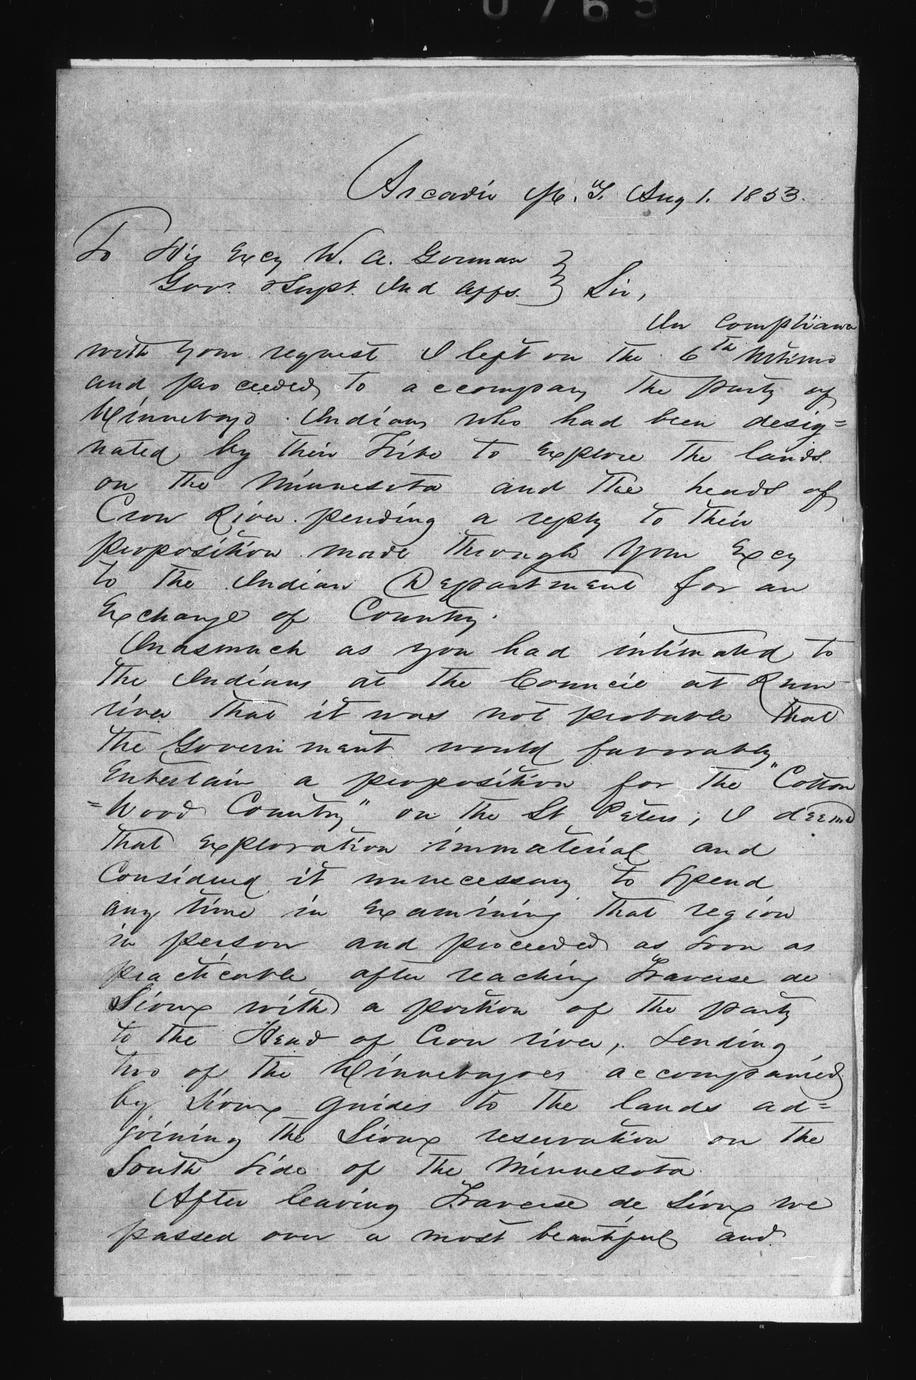 0765
Arcadia M. T. Aug 1. 1853.
To His Excy W. A. Gorman }
Govr. & Supt. Ind Affs. } Sir,
In compliance
with your request I left on the 6th Ultimo
and proceeded to accompany the party of
Winnebago Indians who had been desig=
nated by their Tribe to explore the lands
on the Minnesota and the heads of
Crow River pending a reply to their
proposition made through Your Excy
to the Indian Department for an
Exchange of Country.
Inasmuch as you had intimated to
the Indians at the Council at Rum
river that it was not probable that
the Government would favorably
Entertain a proposition for the "Cotton
=Wood Country" on the St Peters, I deemed
that exploration immaterial and
Considered it unnecessary to Spend
any time in Examining that region
in person and proceeded as soon as
practicable after reaching Traverse de
Sioux with a portion of the party
to the Head of Crow river, Sending
two of the Winnebagoes accompanied
by Sioux guides to the lands ad=
joining the Sioux reservation on the
South Side of the Minnesota
After leaving Traverse de Sioux we
passed over a most beautiful and